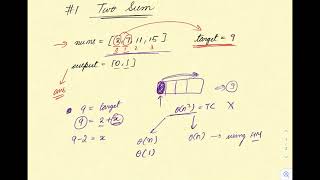 #1 Two Sum
nums = [2, 7, 11, 15] target = 9
0 1 2 3
output = [0, 1]
ans
9 = target
9 = 2 + x
9 - 2 = x
9
O(n²) = TC X
O(n) O(n) → using HM
O(1)